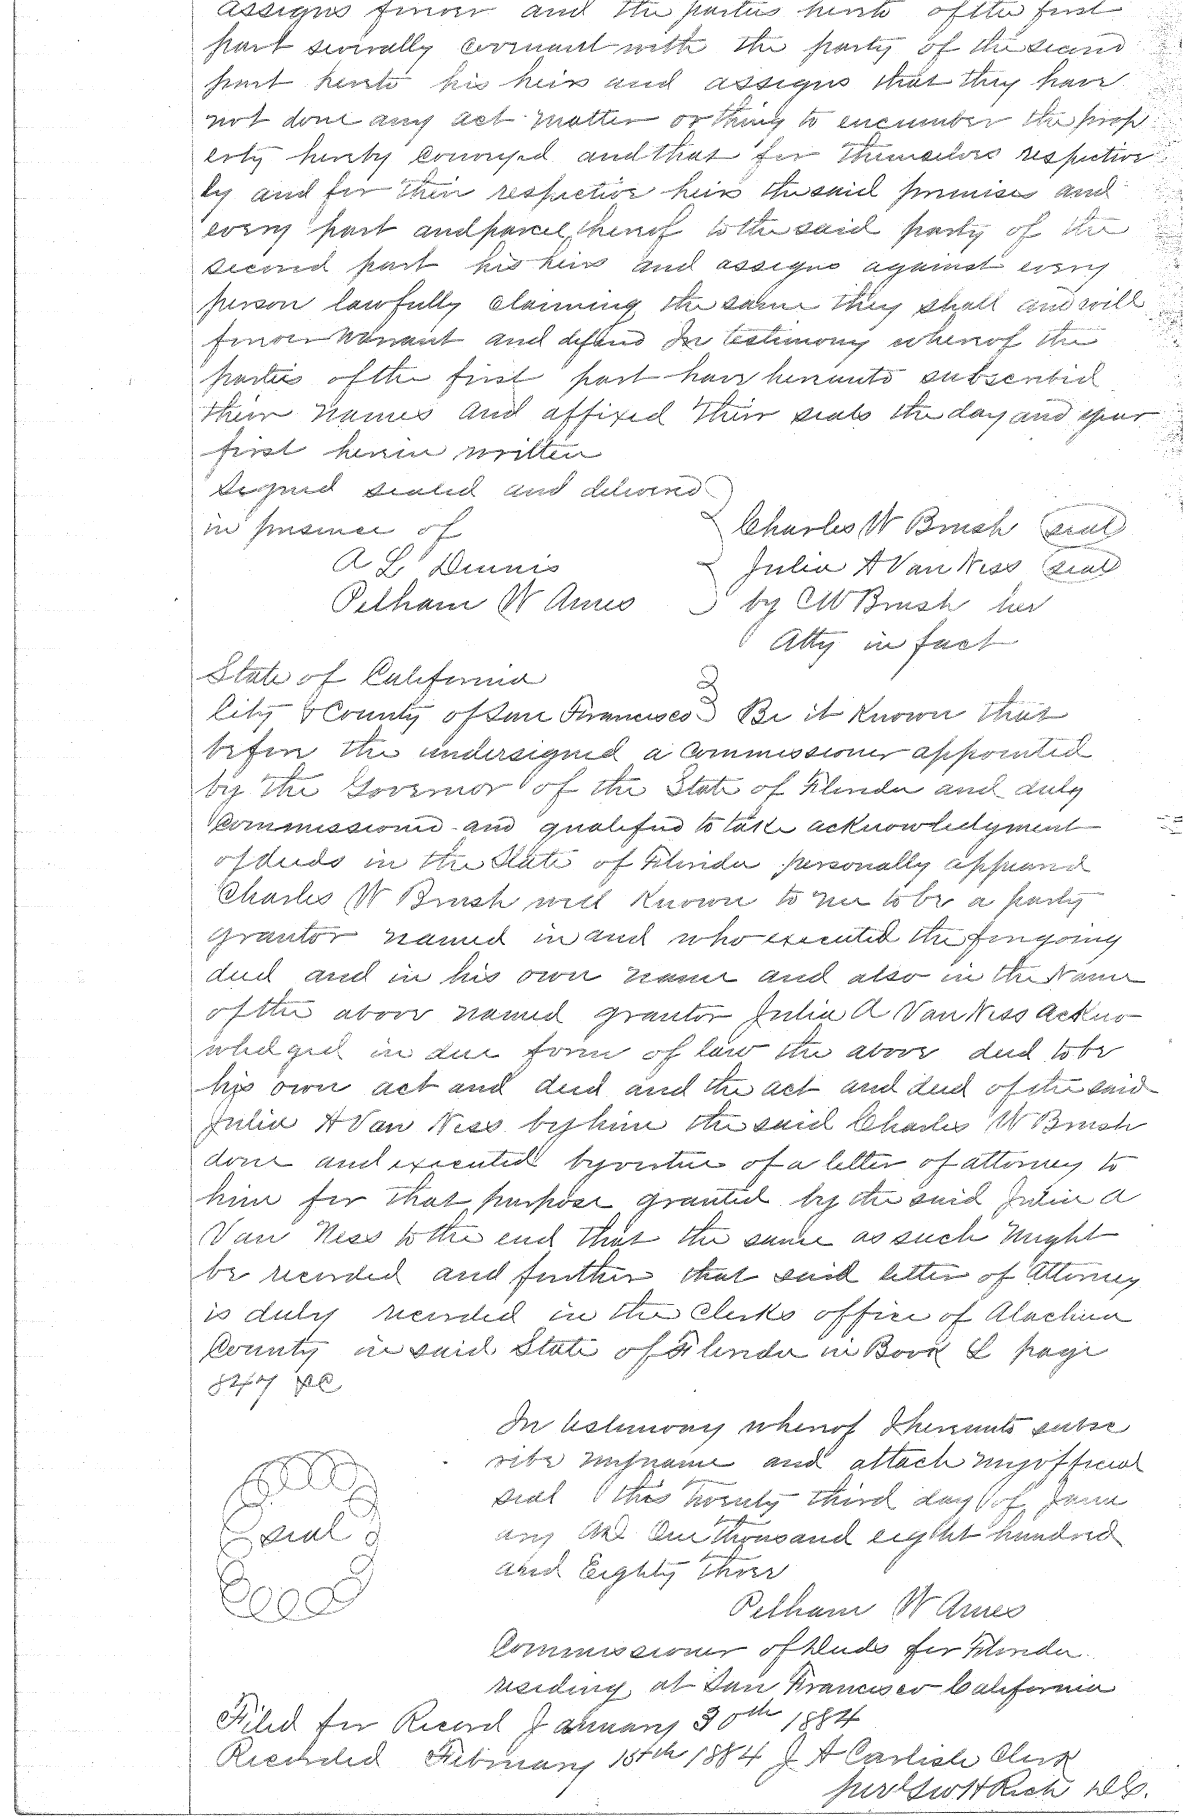 assigns forever and the parties hereto of the first
part severally covenant with the party of the second
part hereto his heirs and assigns that they have
not done any act matter or thing to encumber the prop
erty hereby conveyed and that for themselves respective
ly and for their respective heirs the said premises and
every part and parcel thereof to the said party of the
second part his heirs and assigns against every
person lawfully claiming the same they shall and will
forever warrant and defend In testimony whereof the
parties of the first part have hereunto subscribed
their names and affixed their seals the day and year
first herein written
Signed sealed and delivered
in presence of Charles W Brush (seal)
A L Dennis Julia A Van Ness (seal)
Pelham W Ames by CW Brush her
Atty in fact
State of California
City & County of San Francisco Be it Known that
before the undersigned a Commissioner appointed
by the Governor of the State of Florida and duly
Commissioned and qualified to take acknowledgment
of deeds in the State of Florida personally appeared
Charles W Brush well known to me to be a party
grantor named in and who executed the foregoing
deed and in his own name and also in the Name
of the above named grantor Julia A Van Ness ackno
wledged in due form of law the above deed to be
his own act and deed and the act and deed of the said
Julia A Van Ness by him the said Charles W Brush
done and executed by virtue of a letter of attorney to
him for that purpose granted by the said Julia A
Van Ness to the end that the same as such might
be recorded and further that said letter of Attorney
is duly recorded in the Clerks office of Alachua
County in said State of Florida in Book L page
847 &c
In testimony whereof I hereunto subsc
ribe my name and attach my official
seal this Twenty third day of Janu
ary AD One thousand eight hundred
seal
and Eighty three
Pelham W Ames
Commissioner of Deeds for Florida
residing at San Francisco California
Filed for Record January 30th 1884
Recorded February 15th 1884 J A Carlisle Clerk
per Geo H Rich D.C.